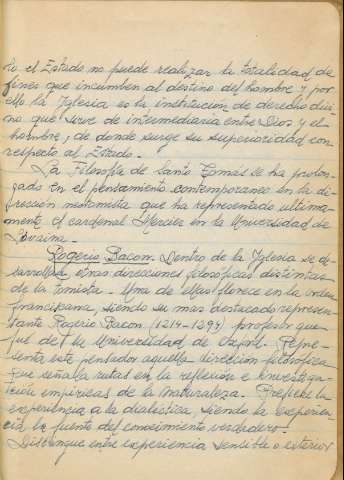 to el Estado no puede realizar la totalidad de
fines que incumben al destino del hombre y por
ello la Iglesia es la institución de derecho divi-
no que sirve de intermediaria entre Dios y el
hombre, de donde surge su superioridad con
respecto al Estado.-
La Filosofía de Santo Tomás se ha prolon-
gado en el pensamiento contemporaneo en la di-
rección neotomista que ha representado ultima-
mente el cardenal Mercier en la Universidad de
Lovaina.-
Rogerio Bacon. Dentro de la Iglesia se de-
sarrollan otras direcciones filosóficas distintas
de la tomista.- Una de ellas florece en la orden
franciskana, siendo su mas destacado represen-
tante Rogerio Bacon (1214-1294) profesor que
fué de la Universidad de Oxford. Repre-
senta este pensador aquella dirección filosófica
que señala rutas en la reflexión e investiga-
ción empíricas de la naturaleza.- Prefiere la
experiencia a la dialéctica, siendo la experien-
cia la fuente del conocimiento verdadero.-
Distingue entre experiencia sensible o exterior